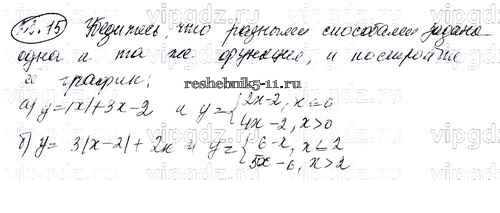 12.15 Убедитесь, что разными способами задана
одна и та же функция, и постройте
её график:
reshebnik5-11.ru
а) y=|x|+3x-2 и y={2x-2, x≤0
4x-2, x>0
б) y= 3|x-2|+2x и y={6-x, x≤2
5x-6, x>2
vipgdz.ru